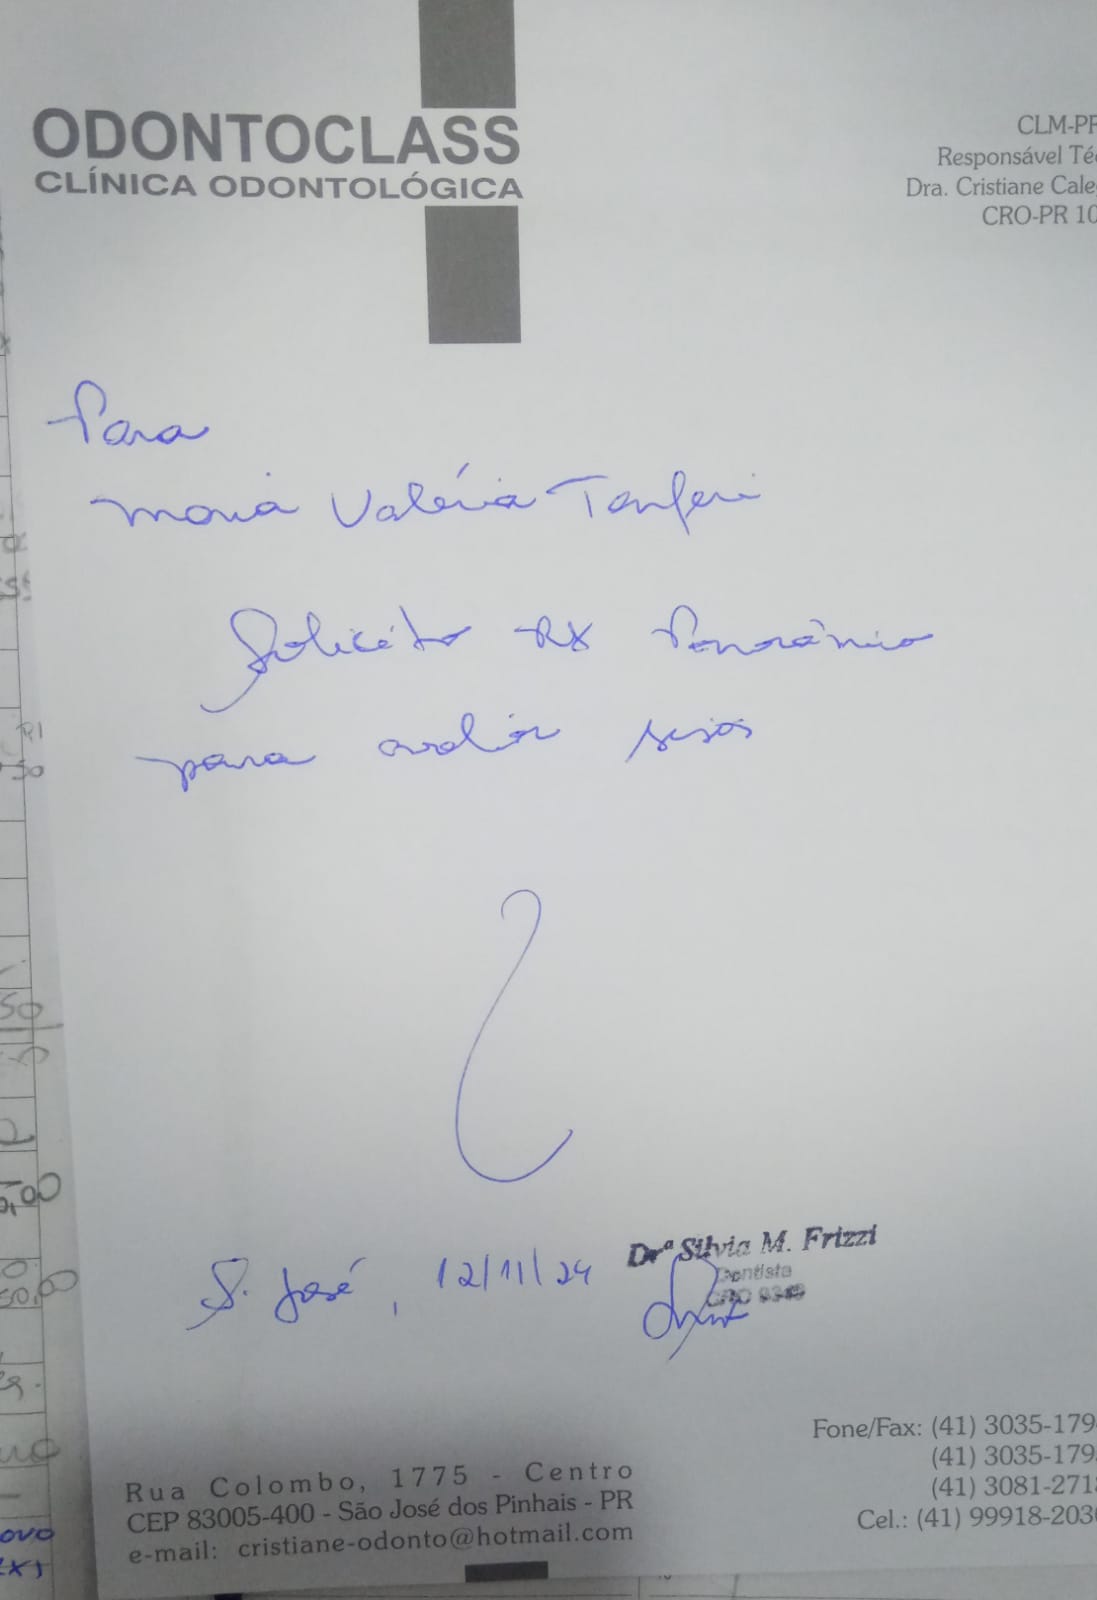 ODONTOCLASS
CLÍNICA ODONTOLÓGICA
CLM-PR
Responsável Téc
Dra. Cristiane Cale
CRO-PR 10
Para
Maria Valéria
Solicito RX Panorâmico
para avaliar sisos
S. José, 12/11/24
Drª Silvia M. Frizzi
Dentista
CRO
Fone/Fax: (41) 3035-179
(41) 3035-179
(41) 3081-271
Cel.: (41) 99918-203
Rua Colombo, 1775 - Centro
CEP 83005-400 - São José dos Pinhais - PR
e-mail: cristiane-odonto@hotmail.com